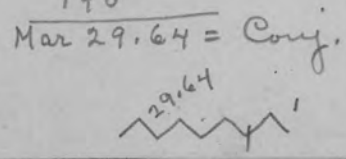 Mar 29.64 = Conj.
29.64